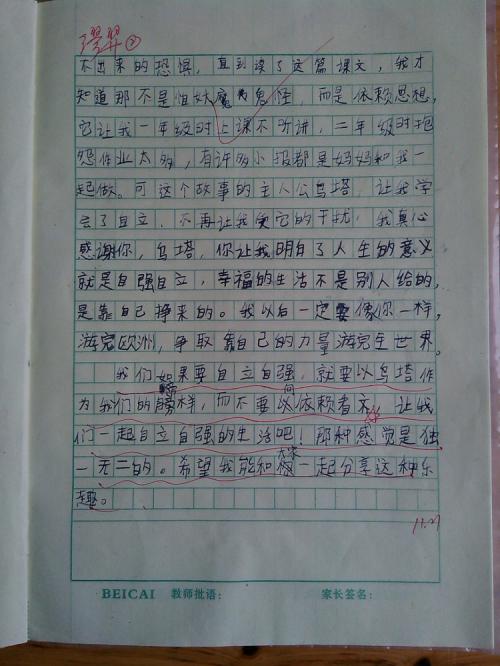 不出来的恐惧，直到读了这篇课文，我才
知道那不是怕妖魔鬼怪，而是依赖思想，
它让我一年级时上课不听讲，二年级时抱
怨作业太多，有许多小报都是妈妈和我一
起做。可这个故事的主人公乌塔，让我学
会了自立，不再让我受它的干扰，我真心
感谢你，乌塔，你让我明白了人生的意义
就是自强自立，幸福的生活不是别人给的，
是靠自己挣来的。我以后一定要像你一样，
游完欧洲，争取靠自己的力量游完全世界。
我们如果要自立自强，就要以乌塔作
为我们的榜样，而不要依赖着 让我
们一起自立自强的生活吧！那种感觉是独
一无二的。希望我能和大家一起分享这种乐
趣。
11.27
BEICAI 教师批语： 家长签名：